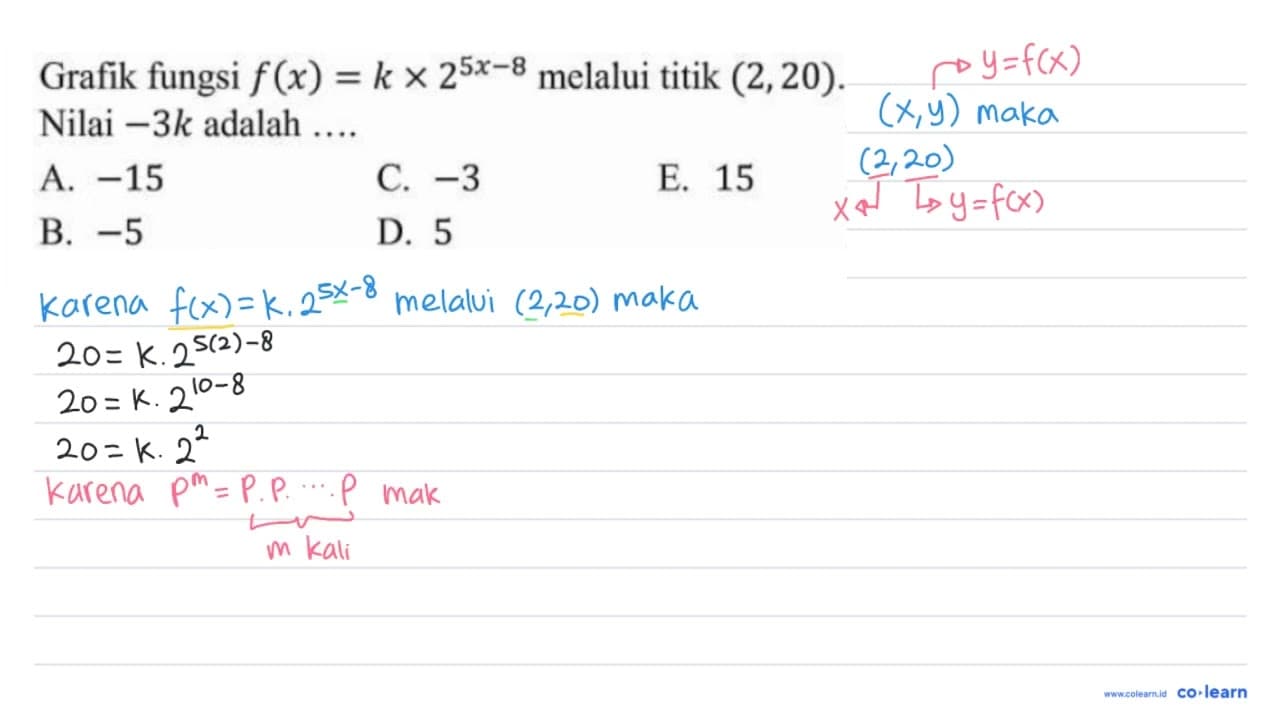 Grafik fungsi f(x) = k × 2^{5x−8} melalui titik (2, 20).
Nilai −3k adalah ....
A. −15 C. −3 E. 15
B. −5 D. 5
y=f(x)
(x,y) maka
(2,20)
x y=f(x)
Karena f(x)=k.2^{5x-8} melalui (2,20) maka
20=k.2^{5(2)-8}
20=k.2^{10-8}
20=k.2^2
Karena p^m=p.p.....p mak
m kali
www.colearn.id co·learn